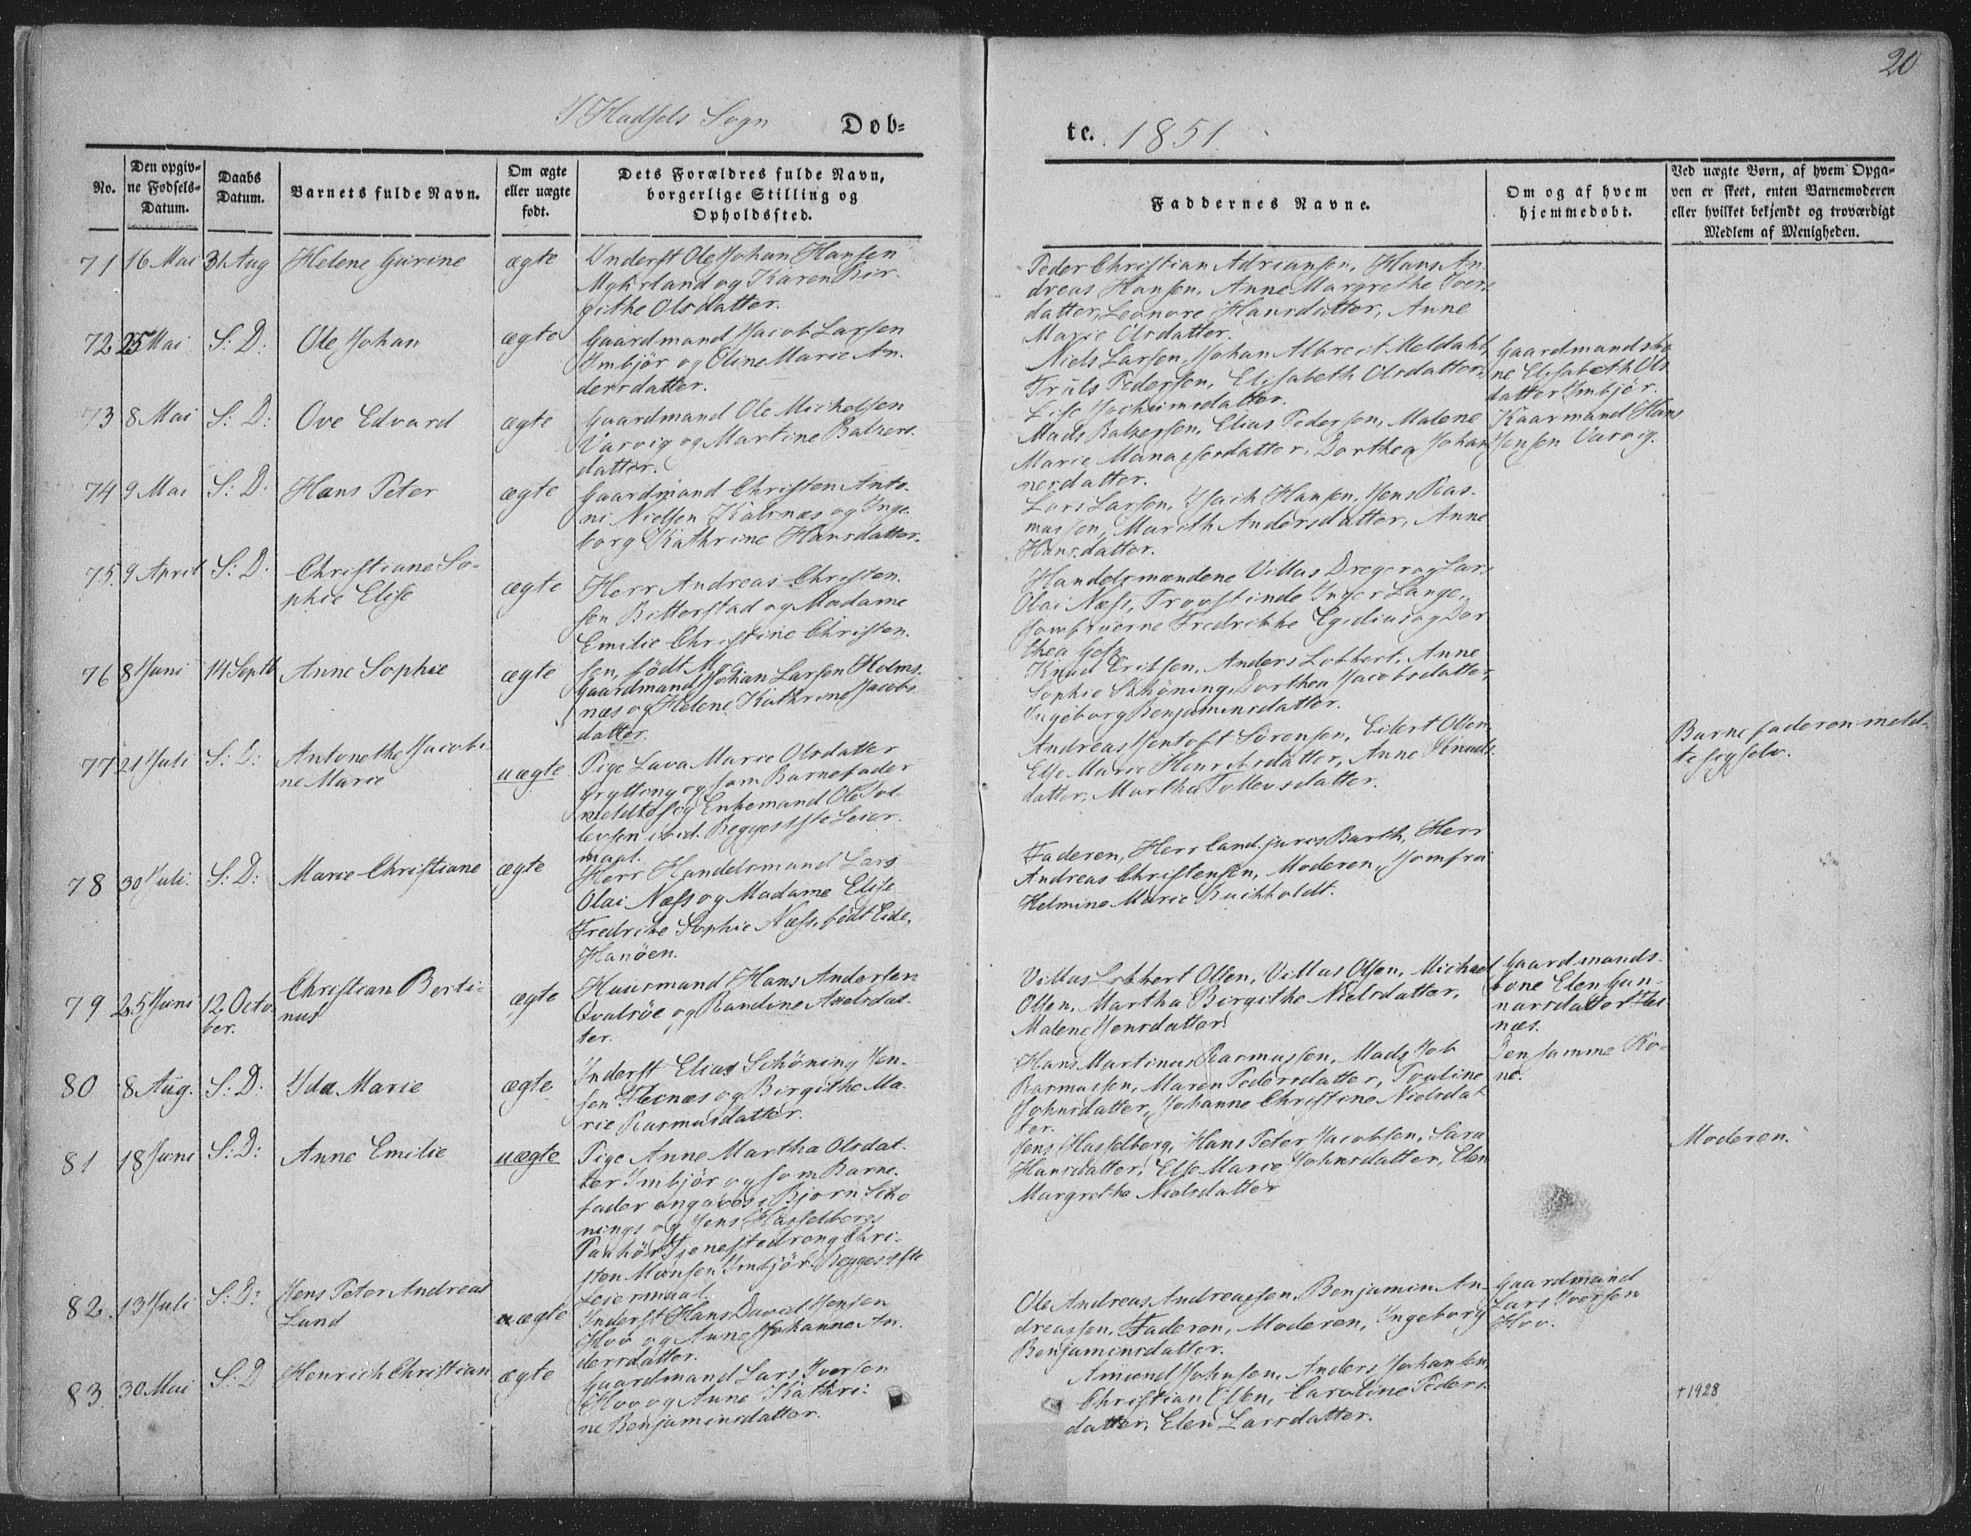 20
I Hadsels Sogn Dob=
te. 1851.
No.
Den opgiv=
ne Fodsels=
Datum.
Daabs
Datum.
Barnets fulde Navn.
Om ægte
eller uægte
fodt.
Dets Forældres fulde Navn,
borgerlige Stilling og
Opholdssted.
Faddernes Navne.
Om og af hvem
hjemmedobt.
Ved uægte Born, af hvem Opga=
ven er skeet, enten Barnemoderen
eller hvilket bekjendt og troværdigt
Medlem af Menigheden.
71 16 Mai 31 Aug Helene Gurine ægte
Inderst Ole Johan Hansen
og Karen Bir-
githe Olsdatter.
Peder Christian Adriansen, Hans An-
dreas Hansen, Anne Margrethe Ivers
datter, Leonore Hansdatter, Anne
Marie Olsdatter.
72 25 Mai S: D: Ole Johan ægte
Gaardmand Jacob Larsen
Imbjør og Oline Marie An-
dersdatter.
Niels Larsen, Johan Albrecht Meldahl,
Truls Pedersen, Elisabeth Olsdatter,
Lise Jochumsdatter.
Gaardmandsko-
ne Elisabeth Ols
datter Imbjør.
73 8 Mai S: D: Ove Edvard ægte
Gaardmand Ole Michelsen
Varvig og Martine Balzers-
datter.
Mads Balzersen, Elias Pedersen, Malene
Marie Manassesdatter, Dorthea Johan
nesdatter.
Kaarmand Hans
Jensen Varvig.
74 9 Mai S: D: Hans Peter ægte
Gaardmand Christen Anto-
ni Nielsen Kalsnæs og Inge-
borg Kathrine Hansdatter.
Lars Larsen, Isach Hansen, Jens Ras-
mussen, Marith Andersdatter, Anne
Hansdatter.
75. 9 April S: D: Christiane So-
phie Elise ægte
Herr Andreas Christen-
sen Bitterstad og Madame
Emilie Christine Christen-
sen, født Moe
Handelsmændene Villas Dreyer og Lars
Olai Næss, Provstinde Inger Lange,
Jomfruerne Fredrikke Egidius og Dor
thea
76 8 Juni 14 Septb Anne Sophie ægte
Gaardmand Johan Larsen Holms-
næs og Helene Kathrine Jacobs-
datter.
Knud Eritsen, Anders Lobbert, Anne
Sophie Schøning, Dorthea Jacobsdatter,
Ingeborg Benjaminsdatter.
77 21 Juli S: D: Antonethe Jacobi-
ne Marie uægte
Pige Lava Marie Olsdatter
Grytting og som Barnefader
meldte sig Enkemand Ole Tol-
levsen ibid. Begges 1ste Leier-
maal.
Andreas Jentoft Sørensen, Eidert Olsen,
Else Marie Henriksdatter, Anne Knuds-
datter, Martha Tollevsdatter.
Barnefaderen meld-
te sig selv.
78 30 Juli. S: D: Marie Christiane ægte
Herr Handelsmand Lars
Olai Næss og Madame Elise
Fredrikke Sophie Næss, født Eide,
Hanøen.
Faderen, Herr Cand. juris Barth, Herr
Andreas Christensen, Moderen, Jomfru
Helmine Marie Buchholdt.
79 25 Juni 12 Octo-
ber. Christian Berti-
nus ægte
Huusmand Hans Andersen
Qvalsøe og Randine Axelsdat-
ter.
Villas Lobbert Olsen, Villas Olsen, Michael
Olsen, Martha Birgithe Nielsdatter,
Malene Jensdatter.
Gaardmands-
kone Elen Gun-
narsdatter Fles-
næs.
80 8 Aug. S: D: Ida Marie ægte
Inderst Elias Schøning Jen-
sen Flesnæs og Birgithe Ma-
rie Rasmusdatter.
Hans Martinus Rasmussen, Mads Job
Rasmussen, Maren Pedersdatter, Pauline
Johnsdatter, Johanne Christine Nielsdat
ter.
Den samme Ko-
ne.
81 18 Juni S: D: Anne Emilie uægte
Pige Anne Martha Olsdat-
ter Imbjør og som Barne-
fader angaves Bjørn Schø
nings og Jens Hasselbergs
Tjenestedreng Chri-
sten Monsen Imbjør. Begges 1ste
Leiermaal.
Jens Hasselberg, Hans Peter Jacobsen, Sara
Hansdatter, Else Marie Johnsdatter, Elen
Margrethe Nielsdatter
Moderen.
82. 13 Juli S: D: Jens Peter Andreas
Lund uægte
Inderst Hans David Jensen
Hov og Anne Johanne An-
dersdatter.
Ole Andreas Andreassen, Benjamin An-
dreassen, Faderen, Moderen, Ingeborg
Benjaminsdatter.
Gaardmand
Lars Iversen
Hov.
83. 30 Mai S: D Henrich Christian ægte
Gaardmand Lars Iversen
Hov og Anne Kathri-
ne Benjaminsdatter.
Amund Johnsen, Anders Johansen,
Christian Olsen, Caroline Peders-
datter, Elen Larsdatter.
+1928